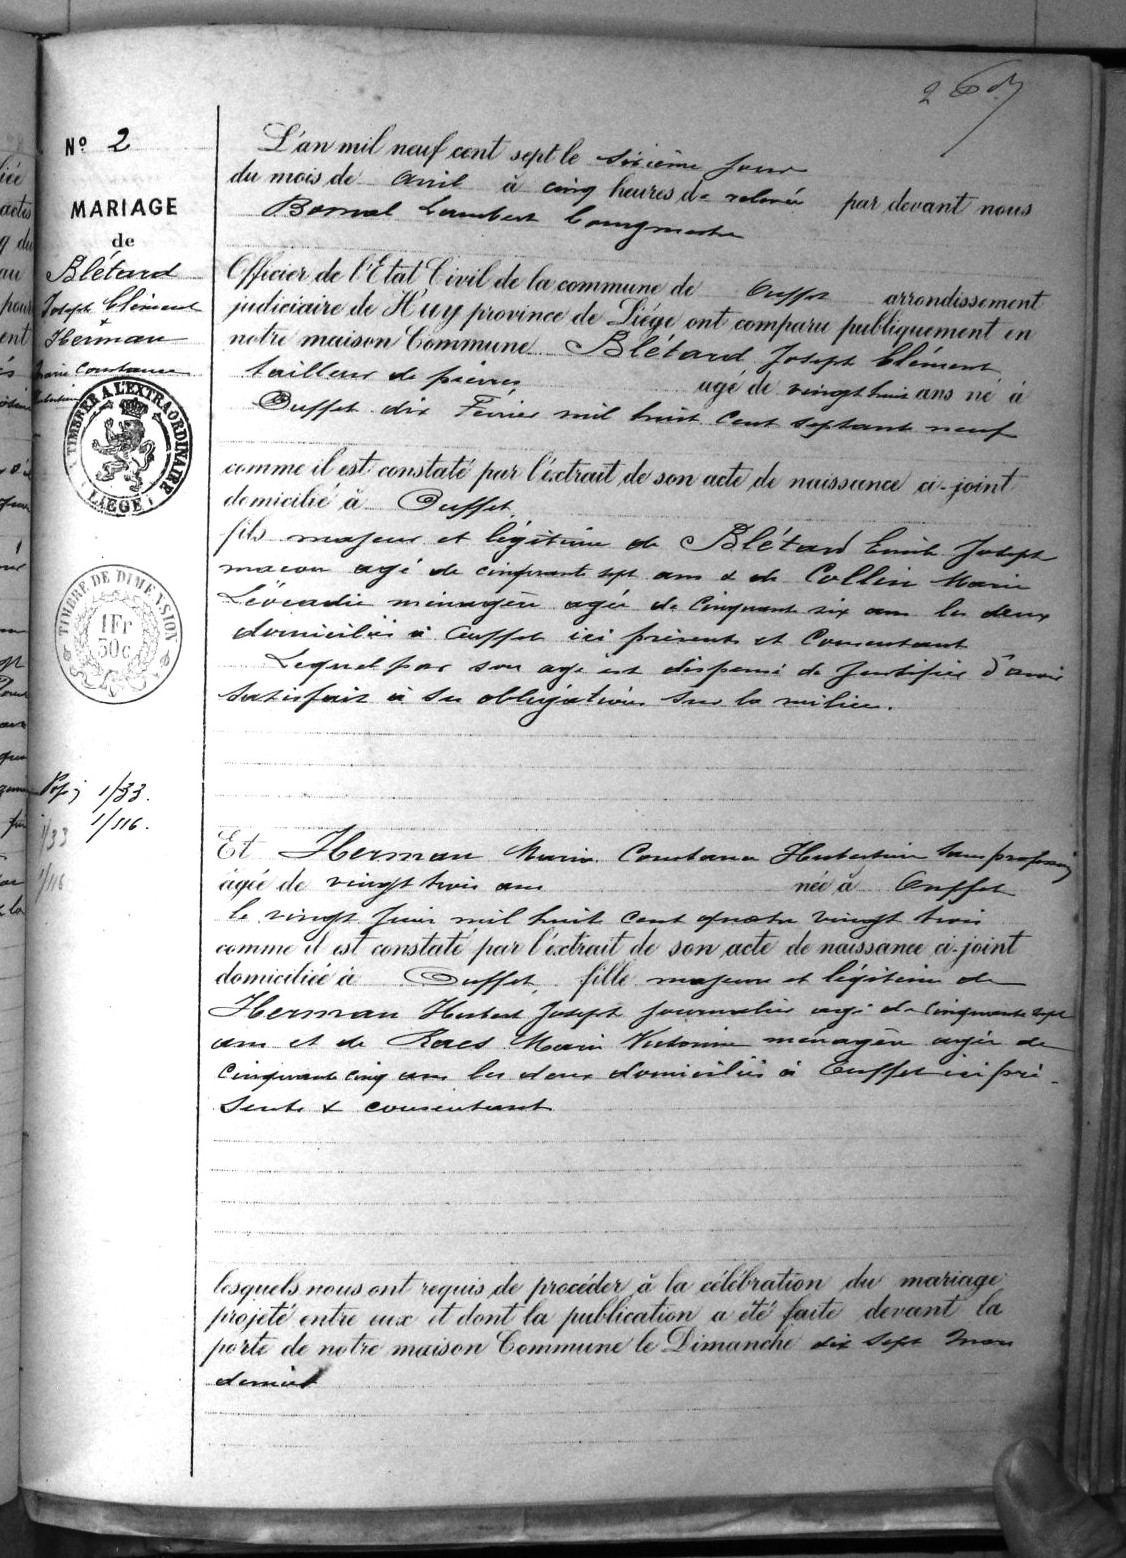 Nº 2
MARIAGE
de
Blétard
Joseph Clément
+
Herman
Marie Constance
TIMBRER A L'EXTRAORDINAIRE
LIÉGE
TIMBRE DE DIMENSION
1Fr
50c
1/33.
1/116.
1/33
1/116
L'an mil neuf cent sept le sixième jour
du mois de avril à cinq heures de relevée par devant nous
Bomal Lambert Bourgmestre
Officier de l'Etat Civil de la commune de Ouffet arrondissement
judiciaire de Huy province de Liége ont comparu publiquement en
notre maison Commune Blétard Joseph Clément
tailleur de pierres agé de vingt huit ans né à
Ouffet dix Février mil huit cent septante neuf
comme il est constaté par l'extrait de son acte de naissance ci-joint
domicilié à Ouffet
fils majeur et légitime de Blétard Emile Joseph
macon agé de cinquante sept ans & de Collin Marie
Léocadie ménagère agée de cinquante six ans les deux
domiciliés à Ouffet ici présents et consentant
Lequel par son age est dispensé de justifier d'avoir
satisfait à ses obligations sur la milice.
Et Herman Marie Constance Hubertine sans profession
âgée de vingt trois ans née à Ouffet
le vingt Juin mil huit cent quatre vingt trois
comme il est constaté par l'extrait de son acte de naissance ci-joint
domiciliée à Ouffet, fille majeure et légitime de
Herman Hubert Joseph journalier agé de cinquante sept
ans et de Raes Marie Victorine ménagère agée de
cinquante cinq ans les deux domiciliés à Ouffet ici pré-
sents & consentant
lesquels nous ont requis de procéder à la célébration du mariage
projeté entre eux et dont la publication a été faite devant la
porte de notre maison Commune le Dimanche dix sept Mars
dernier